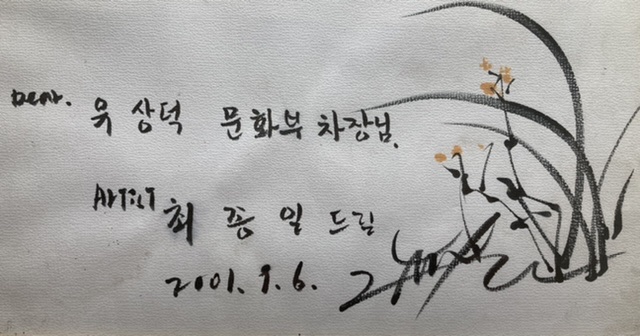 Dear. 육 상덕 문화부 차장님.
Artist 최 종 일 드림
2001. 9. 6.